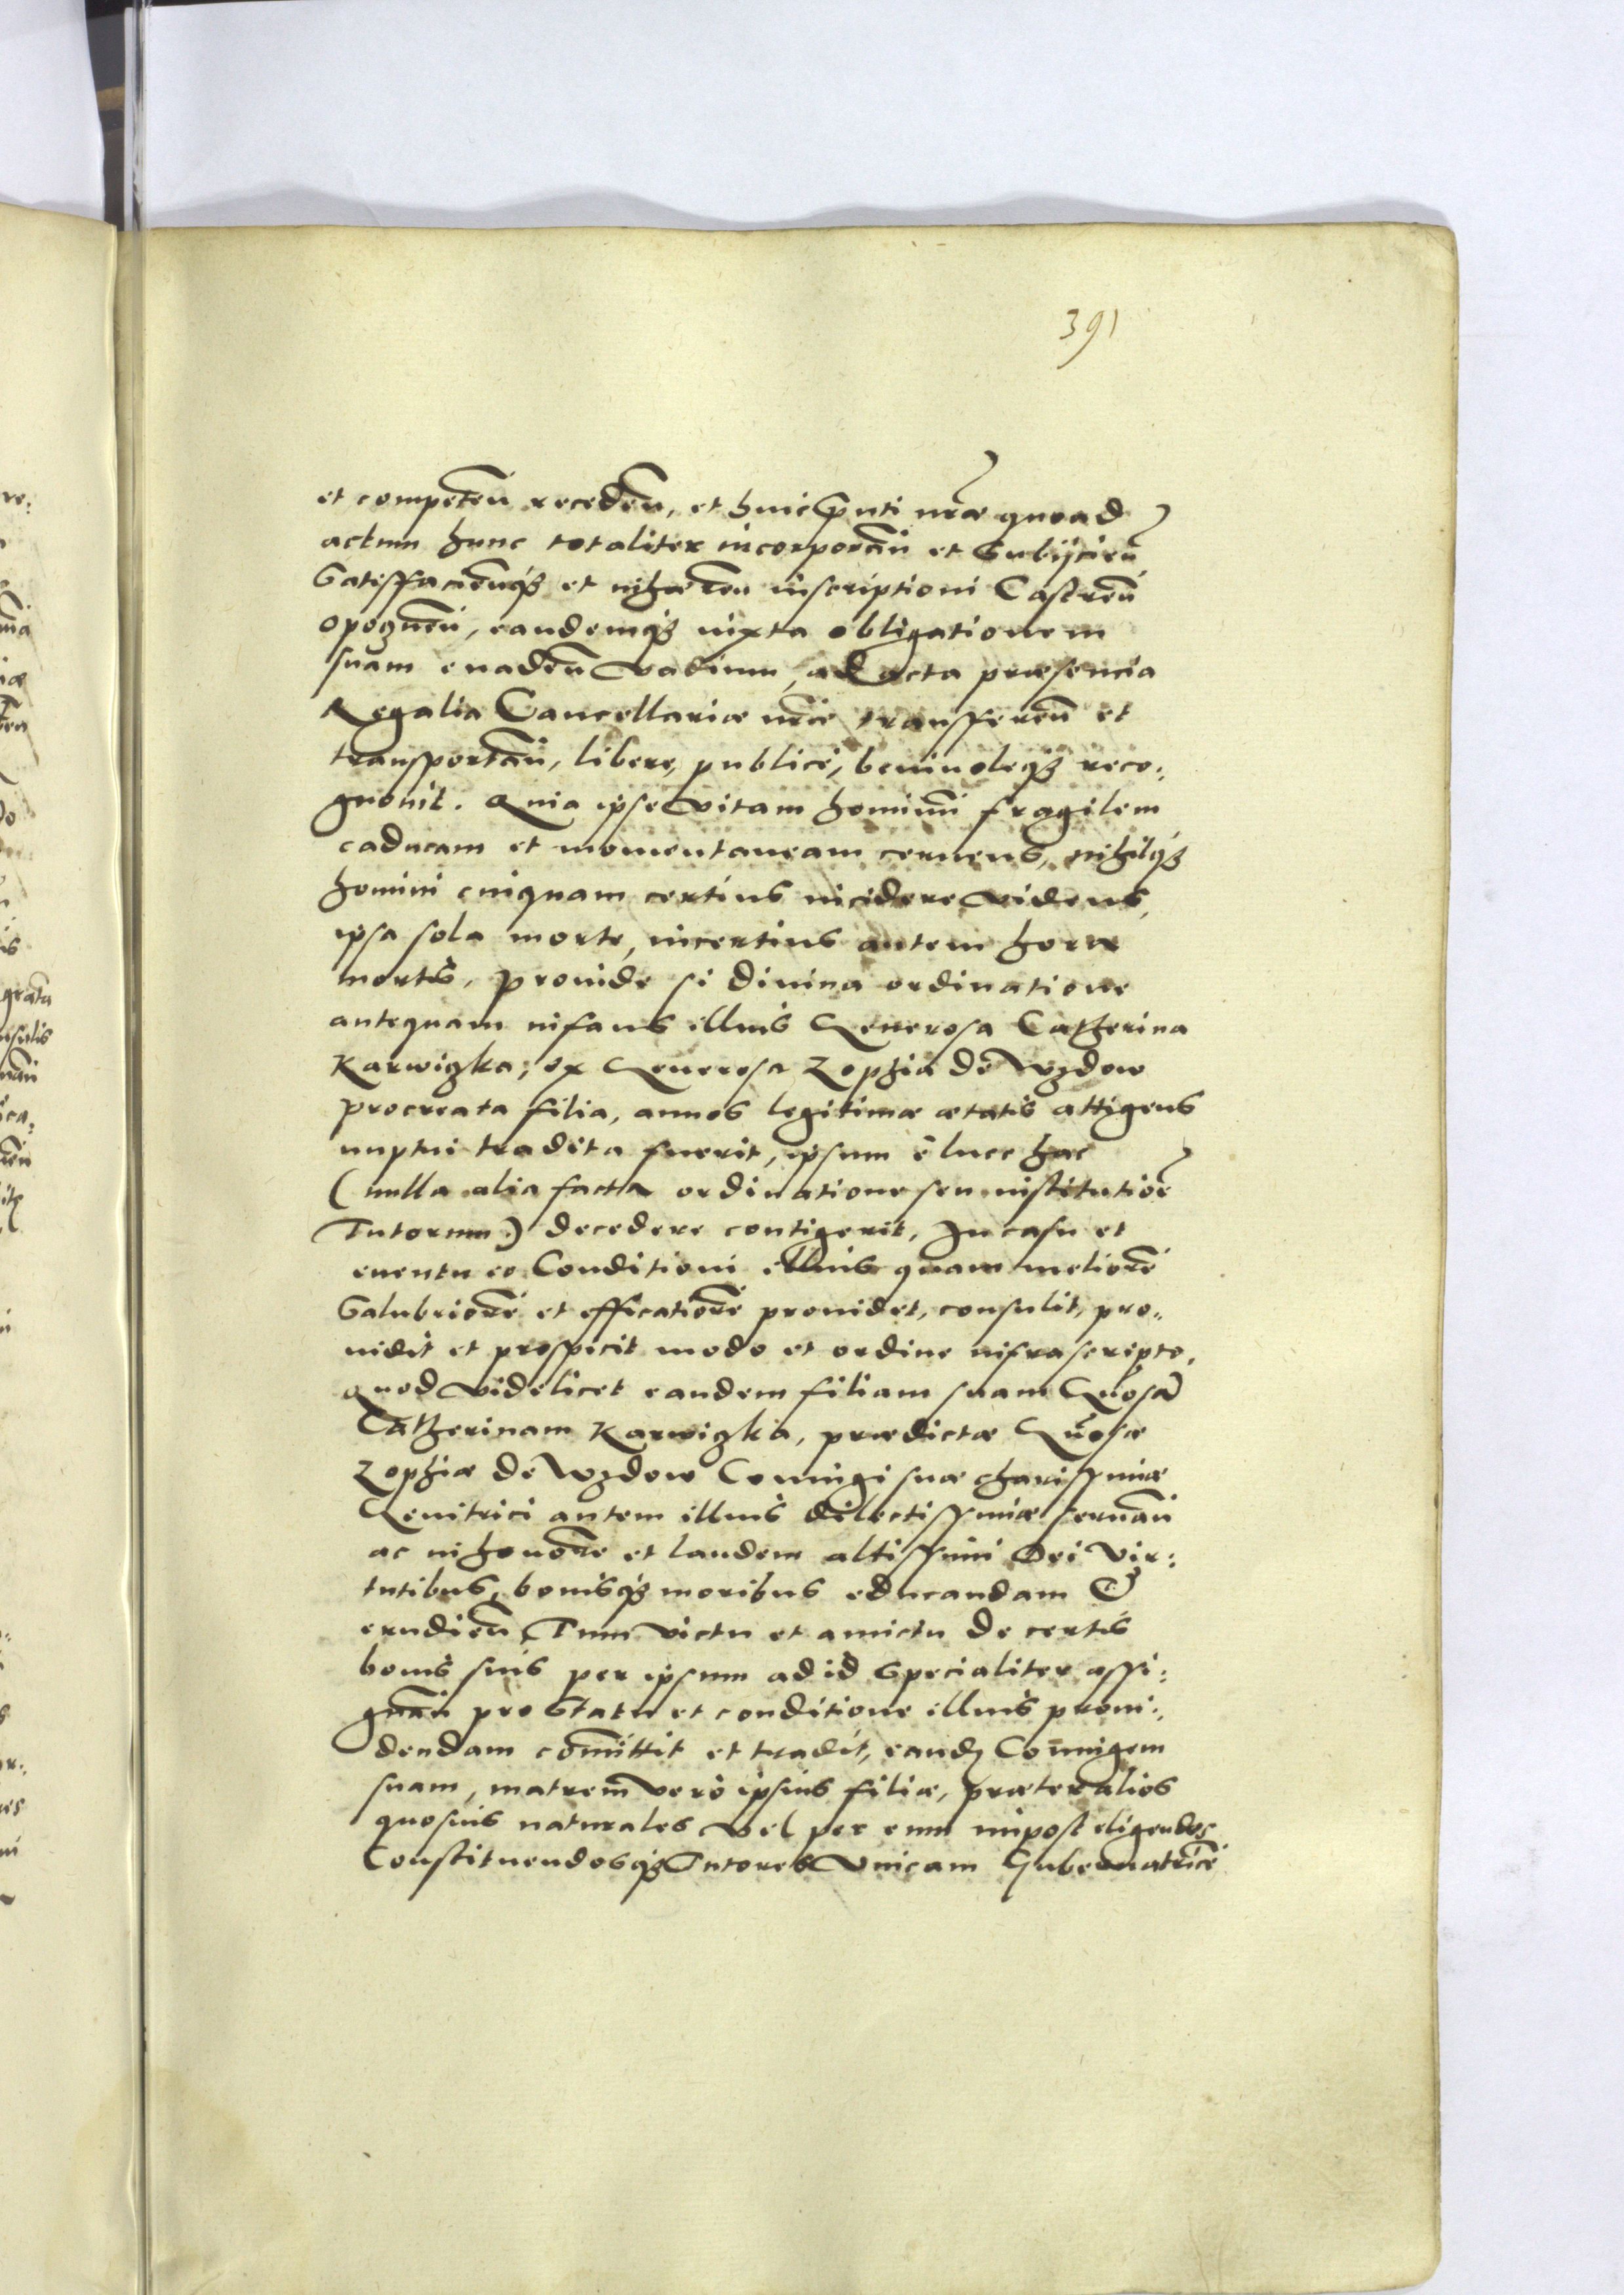 391
et competeñ recedeñ, et huic p̃nti nr̃æ quoad
actum hunc totaliter incorporañ et subijcieñ,
satisffacieñq₃ et inhæreñ inscriptioni Castreñ
opogneñ, eandemq₃ iuxta obligationem
suam euadeñ vadium, ad acta præsencia
Regalia Cancellariæ nr̃æ transffereñ et
transportañ, libere, publice, beniuoleq₃ reco:
gnouit. Quia ipse vitam hominũ fragilem
caducam et momentaneam cernens, nihilq₃
homini cuiquam certius incidere videns,
ipsa sola morte, incertius autem hora
mortis, prouide si diuina ordinatione
antequam infans illius Generosa Catherina
Karwiczka, ex Generosa Zophia de Wzdow
procreata filia, annos legitimæ ætatis attigens
nuptui tradita fuerit, ipsum è luce hac
(nulla alia facta ordinatione seu institutiõe
Tutorum) decedere contigerit, In casu et
euentu eo Conditioni illius quam meliorẽ
salubriorẽ et efficatiorẽ prouidet, consulit, pro:
uidit et prospicit modo et ordine infrascripto,
quod videlicet eandem filiam suam Gñosã
Catherinam Karwiczka, prædictæ Gñosæ
Zophiæ de Wzdow Coniugi suæ charissimæ
Genitrici autem illius dilectissimæ seruañ
ac in honore et laudem altissimi Dei vir:
tutibus, bonisq₃ moribus educandam &
erudieñ, Tum victu et amictu de certis
bonis suis per ipsum ad id specialiter assi:
gnañ pro statu et conditione illius proui:
dendam com̃ittit et tradit, eandẽ Coniugem
suam, matrem verò ipsius filiæ, præter alios
quosuis naturales vel per eum inpost eligendos
Constituendosq₃ Tutores vnicam Gubernatricẽ